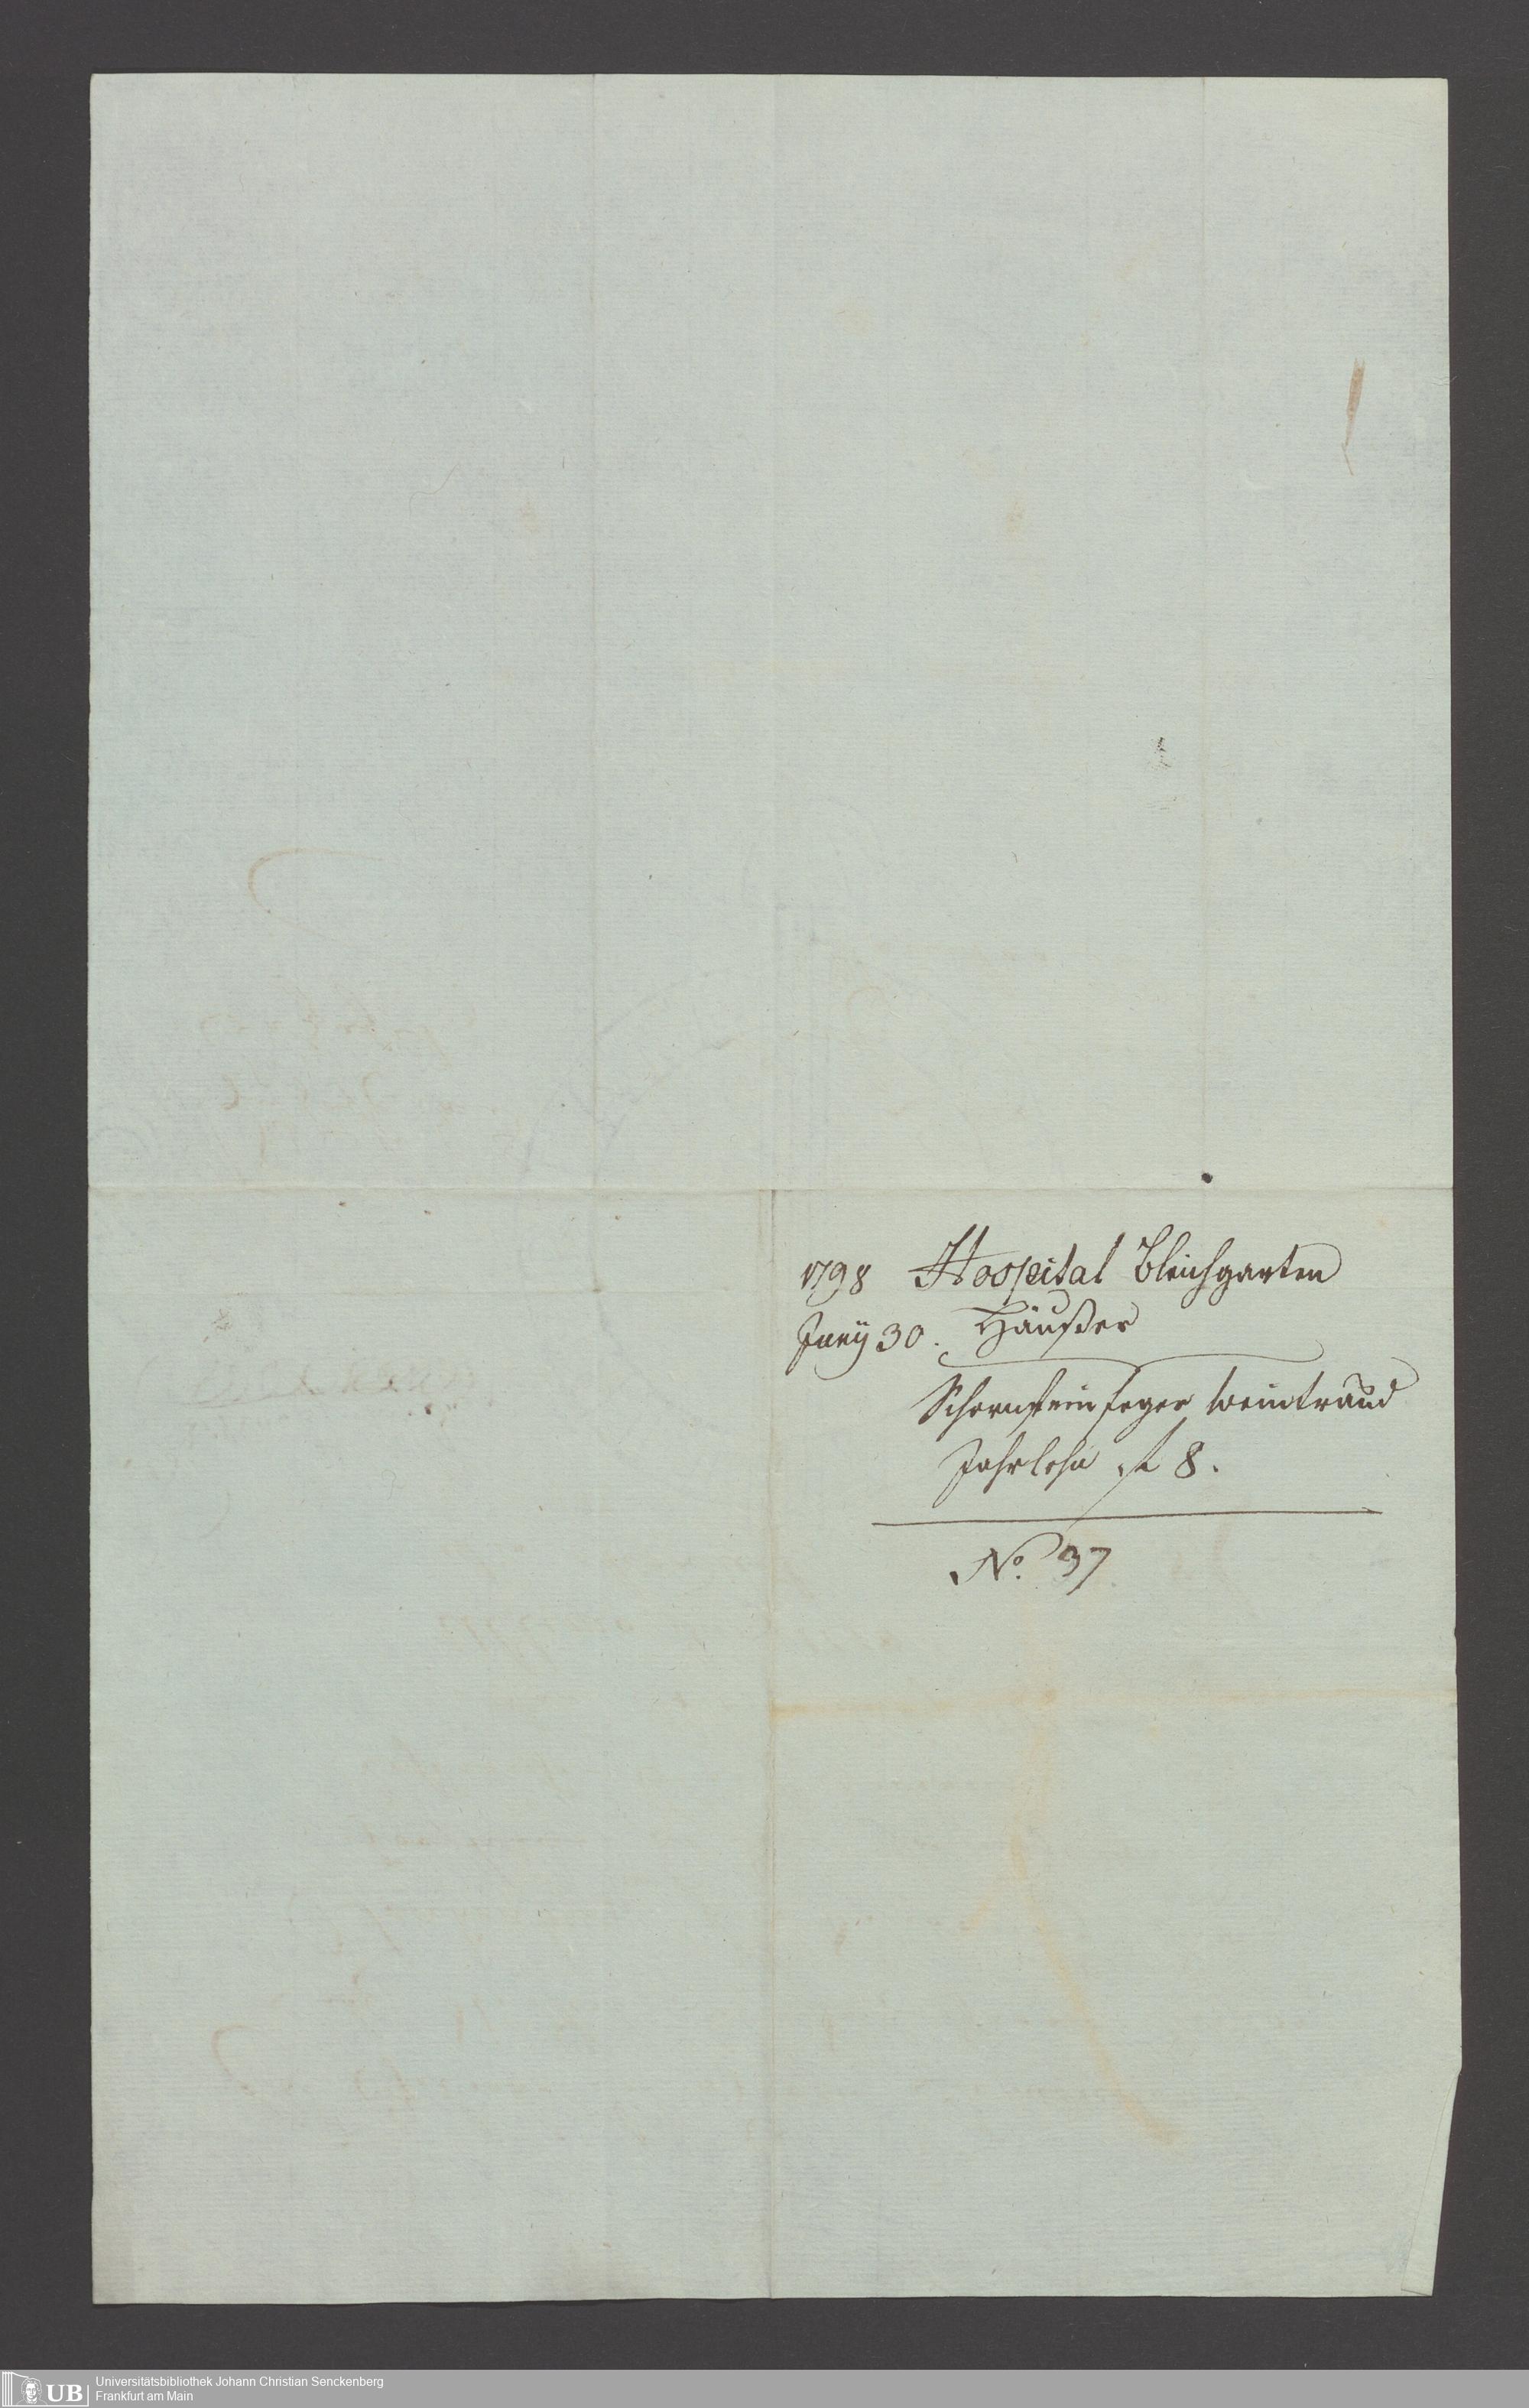 1798 Hospital Bleichgarten
Juny 30. Häußer
Schornstein feger Weintraud
Jahrlohn f 8.
No. 37
UB Universitätsbibliothek Johann Christian Senckenberg
Frankfurt am Main